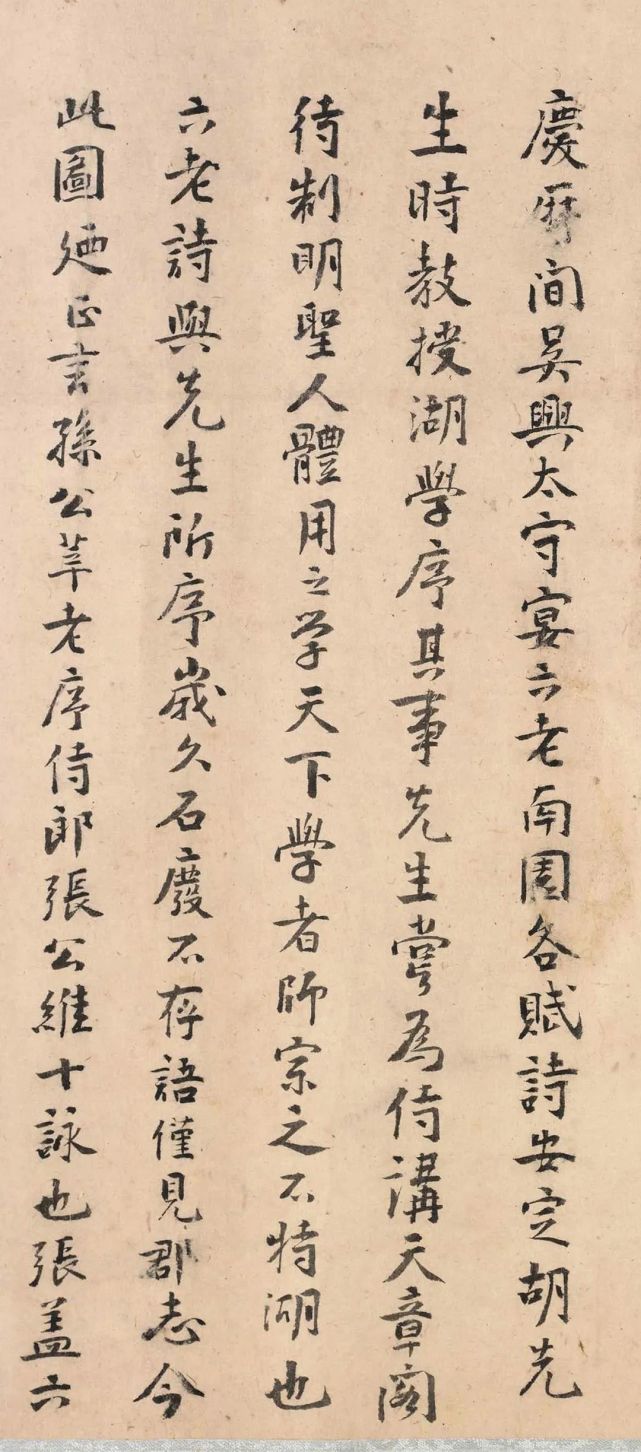 慶曆間吳興太守宴六老南園各賦詩安定胡先
生時教授湖學序其事先生嘗為侍講天章閣
待制明聖人體用之学天下學者師宗之不特湖也
六老詩與先生所序歲久石廢不存語僅見郡志今
此圖廼正言孫公莘老序侍郎張公維十詠也張蓋六